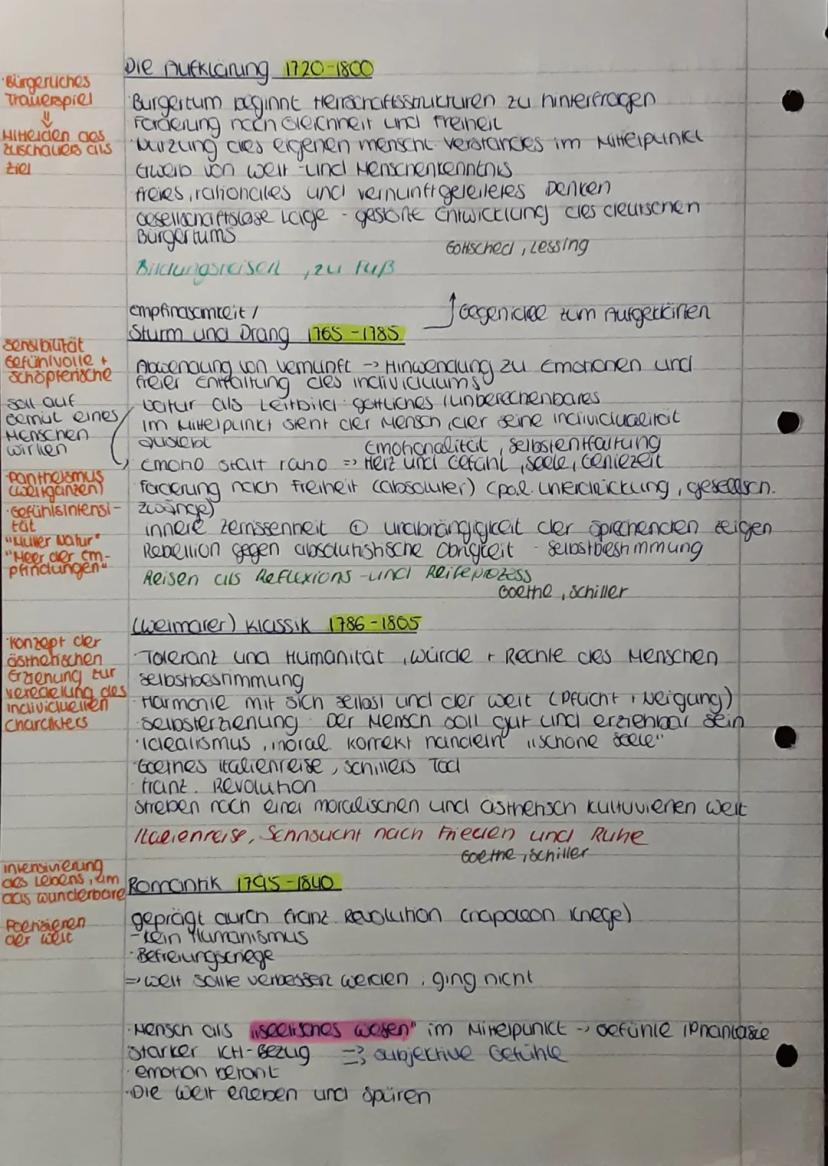 Die Aufklärung 1720-1800
· Bürgerliches
Trauerspiel
⇓
Mitleiden des
Zuschauers als
Ziel
· Bürgertum beginnt Herrschaftsstrukturen zu hinterfragen
Forderung nach Gleichheit und Freiheit
· Nutzung des eigenen menschl. Verstandes im Mittelpunkt
Erwerb von Welt- und Menschenkenntnis
freies, rationales und vernunftgeleitetes Denken
Gesellschaftslose Lage - gestörte Entwicklung des deutschen
Bürgertums
Gottsched, Lessing
Bildungsreisen, zu Fuß
Empfindsamkeit /
↑ Gegenidee zum Aufgeklärten
Sturm und Drang 1765-1785
Sensibilität
Gefühlvolle +
Schöpferische
soll auf
Gemüt eines
Menschen
wirken
Pantheismus
(Weltganzen)
· Gefühlsintensi-
tät
"Mutter Natur"
"Meer der Em-
pfindungen"
Abwendung von Vernunft → Hinwendung zu Emotionen und
freier Entfaltung des Individuums
Natur als Leitbild: göttliches / unberechenbares
im Mittelpunkt steht der Mensch, der seine Individualität
auslebt
Emotionalität, Selbstentfaltung
Emotio statt ratio => Herz und Gefühl, Seele, Geniezeit
Forderung nach Freiheit (absoluter) (pol. Unterdrückung, gesellsch.
Zwänge)
innere Zerrissenheit + Unabhängigkeit der Sprechenden zeigen
Rebellion gegen absolutistische Obrigkeit - Selbstbestimmung
Reisen als Reflexions- und Reifeprozess
Goethe, Schiller
(Weimarer) Klassik 1786-1805
· Konzept der
ästhetischen
Erziehung zur
Veredelung des
individuellen
Charakters
· Toleranz und Humanität, Würde + Rechte des Menschen
Selbstbestimmung
· Harmonie mit sich selbst und der Welt (Pflicht + Neigung)
· Selbsterziehung: Der Mensch soll gut und erziehbar sein
· Idealismus, moral. korrekt handeln "schöne Seele"
· Goethes Italienreise, Schillers Tod
franz. Revolution
Streben nach einer moralischen und ästhetisch kultivierten Welt
Italienreise, Sehnsucht nach Frieden und Ruhe
Goethe, Schiller
Intensivierung
des Lebens, um
das wunderbare
Poetisieren
der Welt
Romantik 1795-1840
geprägt durch franz. Revolution (Napoleon Kriege)
- kein Humanismus
· Befreiungskriege
=> Welt sollte verbessert werden, ging nicht
· Mensch als "seelisches Wesen" im Mittelpunkt → Gefühle / Phantasie
starker ICH-Bezug => subjective Gefühle
· emotion betont
· Die Welt erleben und spüren